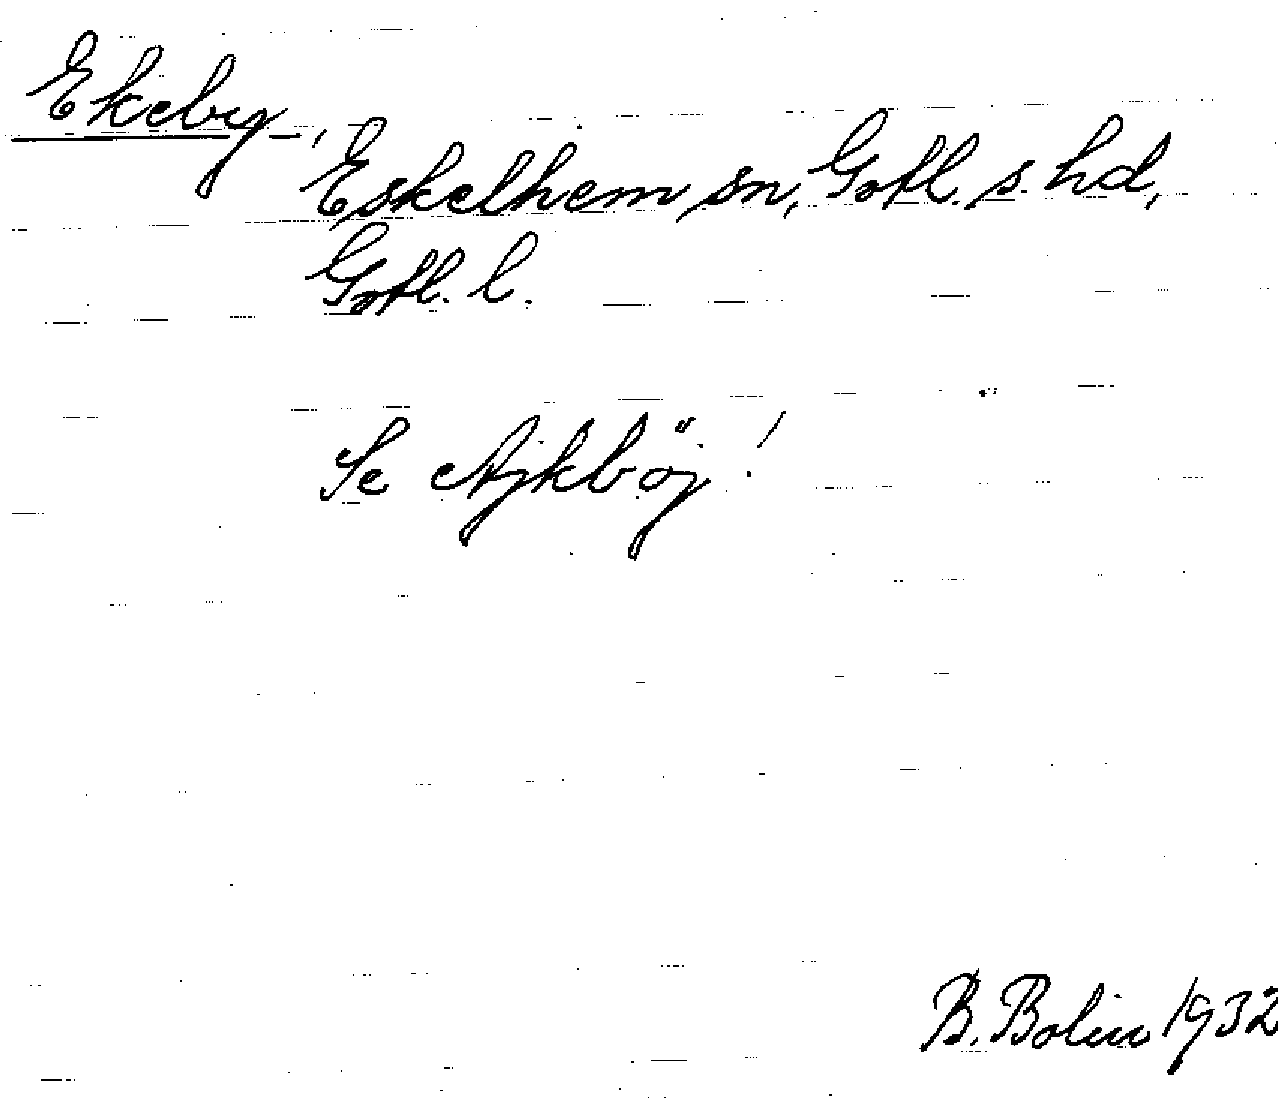 Ekeby,
Eskelhem sn, Gotl. s. hd,
Gotl. l.
Se Ajkböj!
B. Bolin 1932